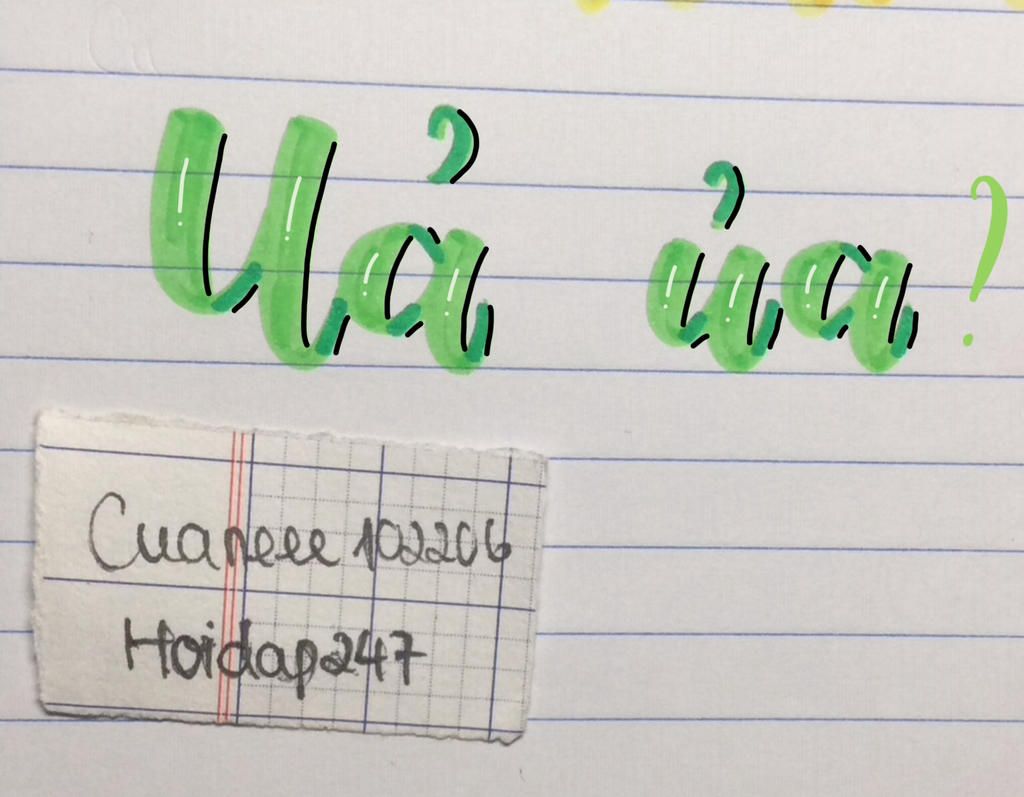 Uả ủa ?
Cuaneee 102206
Hoidap247